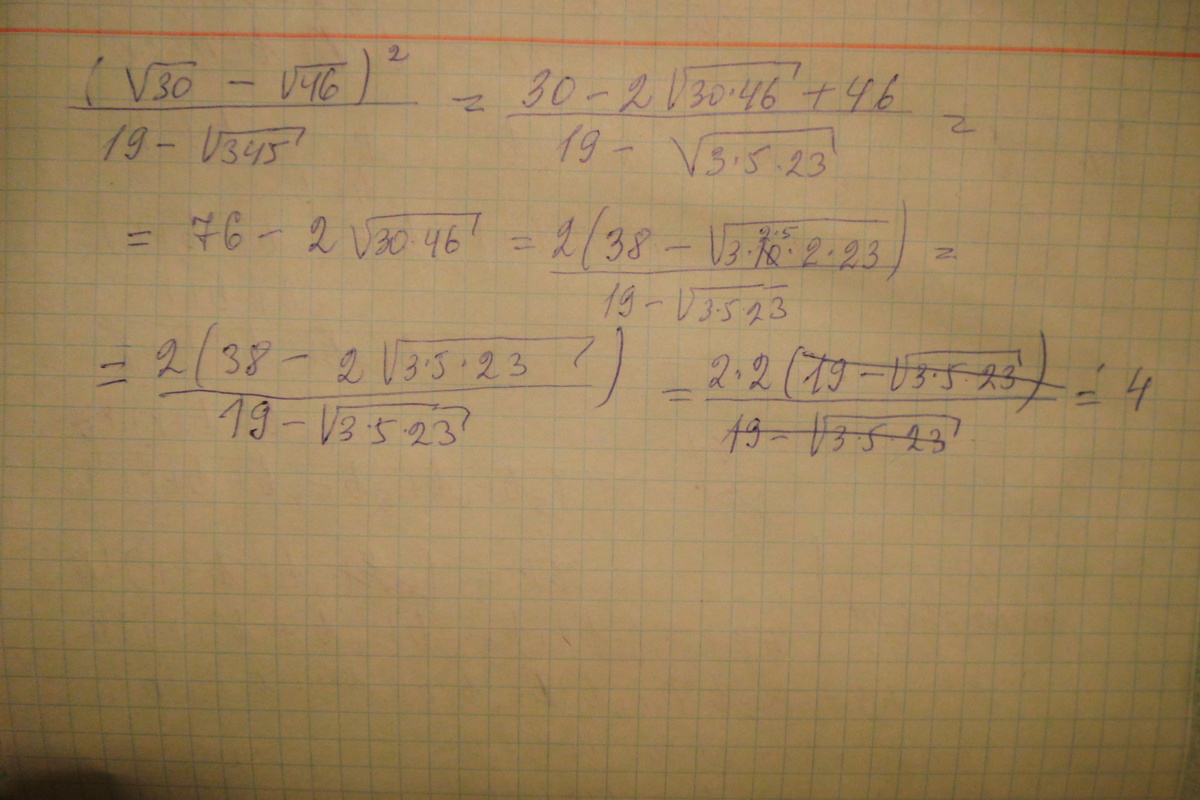 (√30 − √46)² / (19 − √345) = (30 − 2√(30·46) + 46) / (19 − √(3·5·23)) =
= 76 − 2√(30·46) = 2(38 − √(3·2·5·2·23)) / (19 − √(3·5·23)) =
= 2(38 − 2√(3·5·23)) / (19 − √(3·5·23)) = 2·2(19 − √(3·5·23)) / (19 − √(3·5·23)) = 4